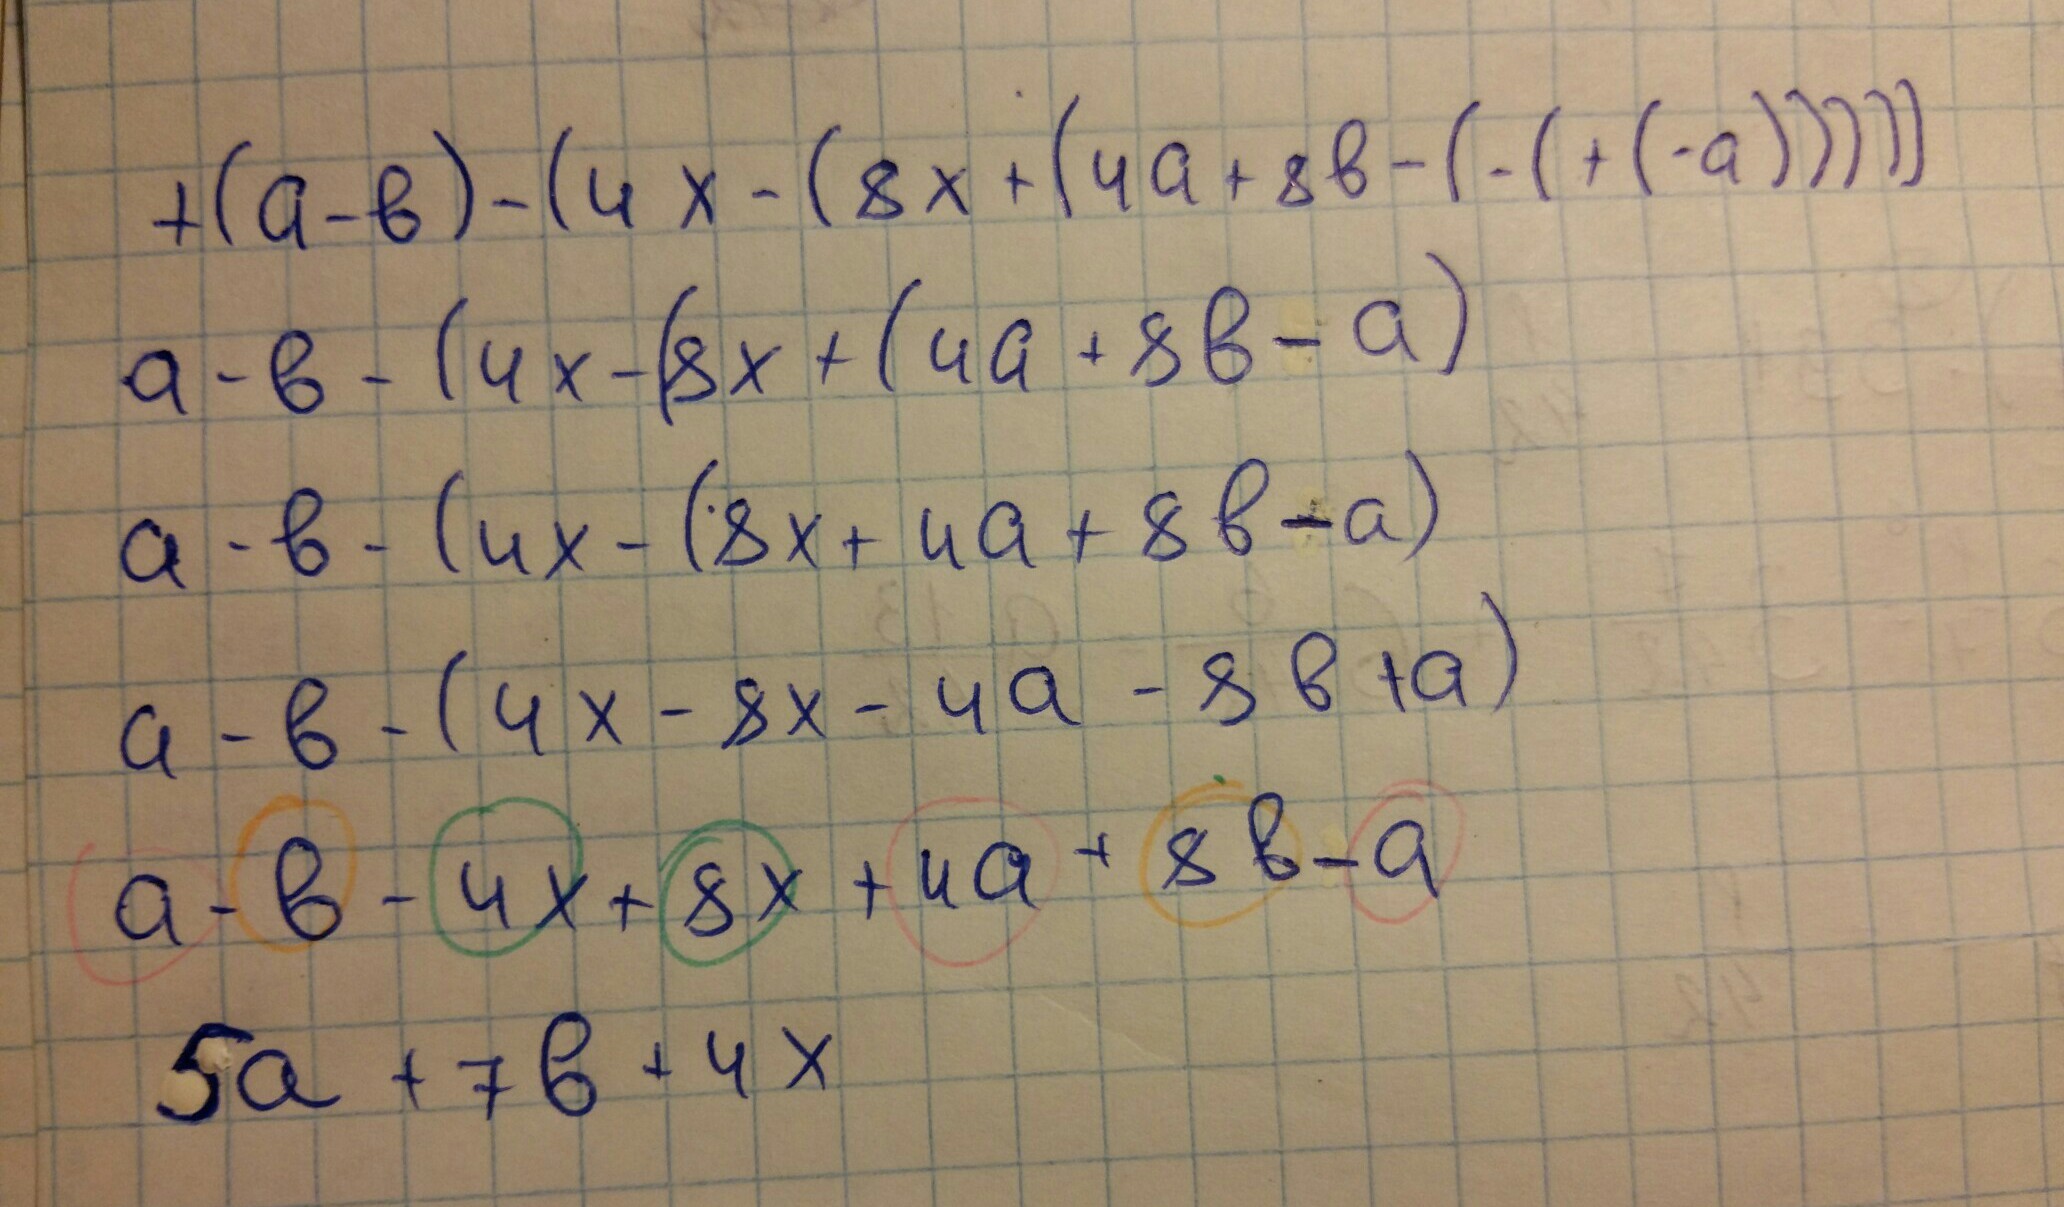 +(a-в)-(4x-(8x+(4a+8в-(-(+(-a))))))
a-в-(4x-(8x+(4a+8в-a)
a-в-(4x-(8x+4a+8в-a)
a-в-(4x-8x-4a-8в+a)
a-в-4x+8x+4a+8в-a
5a+7в+4x